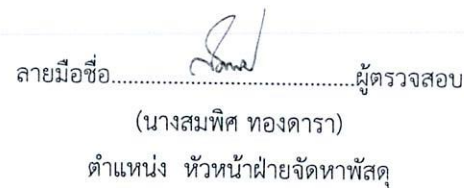 ลายมือชื่อ..........................................ผู้ตรวจสอบ
(นางสมพิศ ทองดารา)
ตำแหน่ง หัวหน้าฝ่ายจัดหาพัสดุ